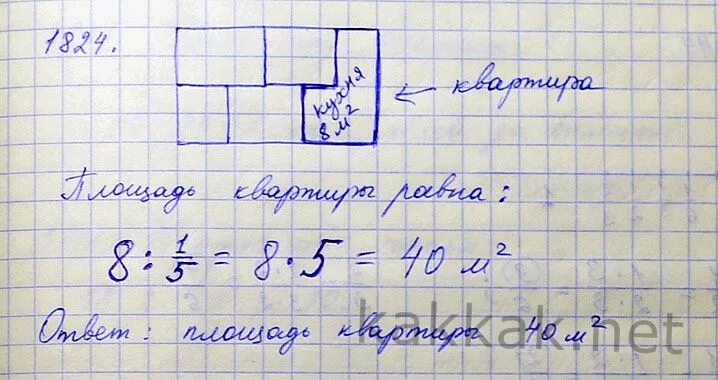 1824.
кухня
8 м²
← квартира
Площадь квартиры равна:
8 : 1/5 = 8 · 5 = 40 м²
Ответ: площадь квартиры 40 м²
kakkak.net